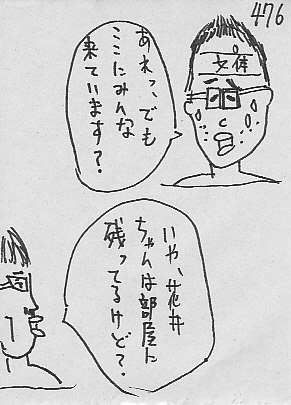 476
あれっ、でも
ここにみんな
来ています?
いや、花井
ちゃんは部屋に
残ってるけど?